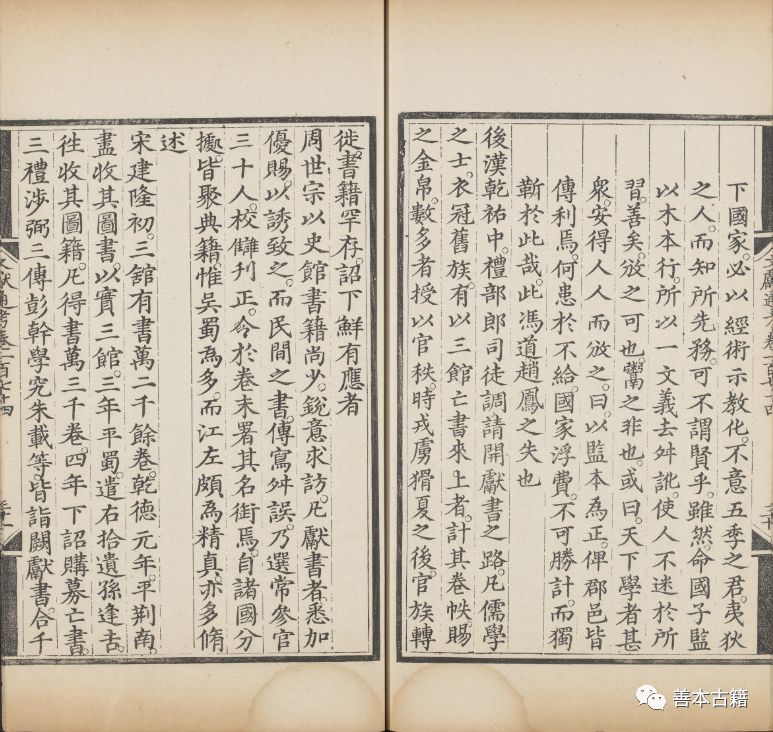 下國家必以經術示教化不意五季之君夷狄
之人而知所先務可不謂賢乎雖然命國子監
以木本行所以一文義去舛訛使人不迷於所
習善矣放之可也鬻之非也或曰天下學者甚
衆安得人人而放之曰以監本為正俾郡邑皆
傳利焉何患於不給國家浮費不可勝計而獨
靳於此哉此馮道趙鳳之失也
後漢乾祐中禮部郎司徒調請開獻書之路凡儒學
之士衣冠舊族有以三館亡書來上者計其卷帙賜
之金帛數多者授以官秩時戎虜猾夏之後官族轉
徙書籍罕存詔下鮮有應者
周世宗以史館書籍尚少銳意求訪凡獻書者悉加
優賜以誘致之而民間之書傳寫舛誤乃選常參官
三十人校讎刊正令於卷末署其名銜焉自諸國分
據皆聚典籍惟吳蜀為多而江左頗為精真亦多脩
述
宋建隆初三舘有書萬二千餘卷乾德元年平荆南
盡收其圖書以實三館三年平蜀遣右拾遺孫逢吉
徃收其圖籍凡得書萬三千卷四年下詔購募亡書
三禮涉弼三傳彭幹學究朱載等皆詣闕獻書合千
文獻通考卷一百七十四
善本古籍